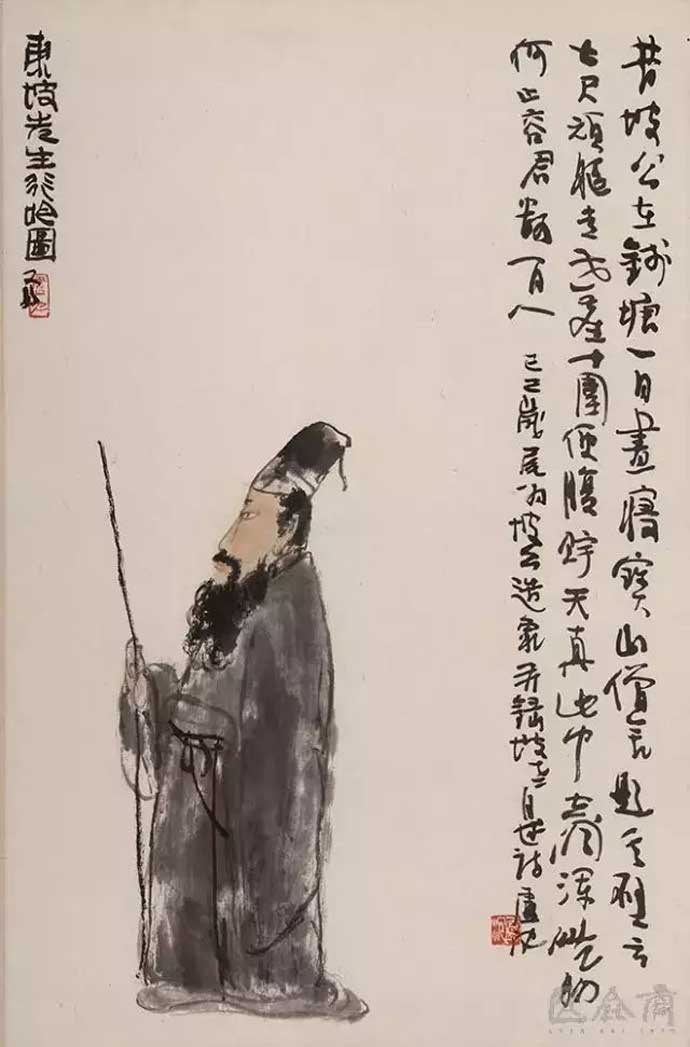 昔坡公在錢塘一日晝寢寶山僧舍題其壁云
七尺頑軀走世塵十圍便腹貯天真此中空洞渾無物
何止容君數百人
己巳歲尾为坡公造象并録坡自述詩
東坡先生行吟圖